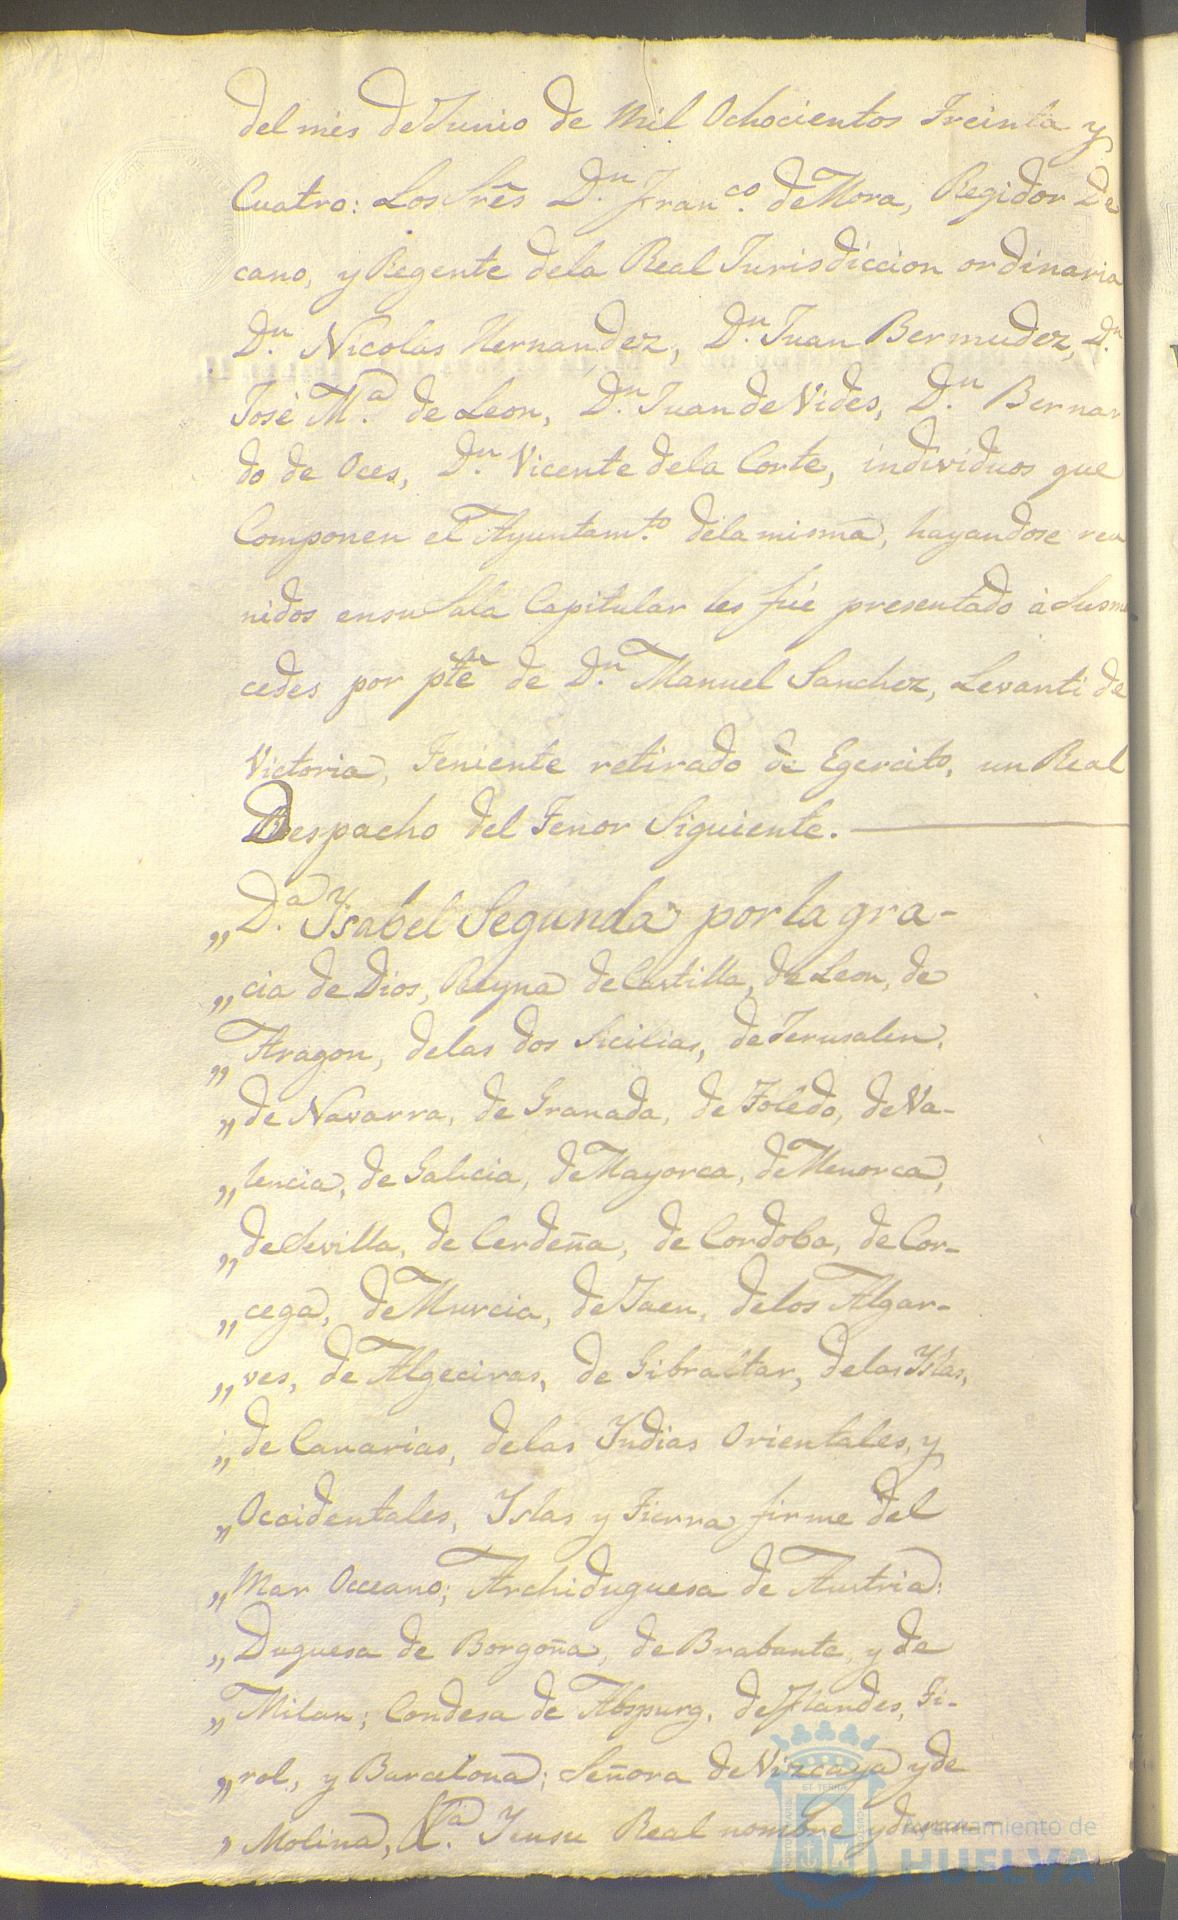 del mes de Junio de Mil Ochocientos Treinta y
Cuatro: Los Sres Dn. Franco. de Mora, Regidor De
cano, y Regente dela Real Jurisdiccion ordinaria
Dn. Nicolas Hernandez, Dn. Juan Bermudez, Dn.
José Ma. de Leon, Dn. Juan de Vides, Dn. Bernar
do de Oces, Dn. Vicente dela Corte, individuos que
Componen el Ayuntamto. dela misma, hayandose reu
nidos ensu Sala Capitular les fué presentado à Susmer
cedes por pte de Dn. Manuel Sanchez, Levanti de
Victoria, Teniente retirado de Egercito, un Real
Despacho del Tenor Siguiente.
„ Da. Ysabel Segunda por la gra-
„ cia de Dios, Reyna de Castilla, de Leon, de
„ Aragon, delas dos Sicilias, de Jerusalen,
„ de Navarra, de Granada, de Toledo, de Va-
„ lencia, de Galicia, de Mayorca, de Menorca,
„ de Sevilla, de Cerdeña, de Cordoba, de Cor-
„ cega, de Murcia, de Jaen, delos Algar-
„ ves, de Algeciras, de Gibraltar, delas Yslas,
„ de Canarias, delas Yndias Orientales, y
„ Occidentales, Yslas y Tierra firme del
„ Mar Occeano; Archiduquesa de Austria:
„ Duquesa de Borgoña, de Brabante, y de
„ Milan; Condesa de Abspurg, de Flandes, Ti-
„ rol, y Barcelona; Señora de Vizcaya y de
„ Molina, &a. Yensu Real nombre y
Ayuntamiento de
HUELVA